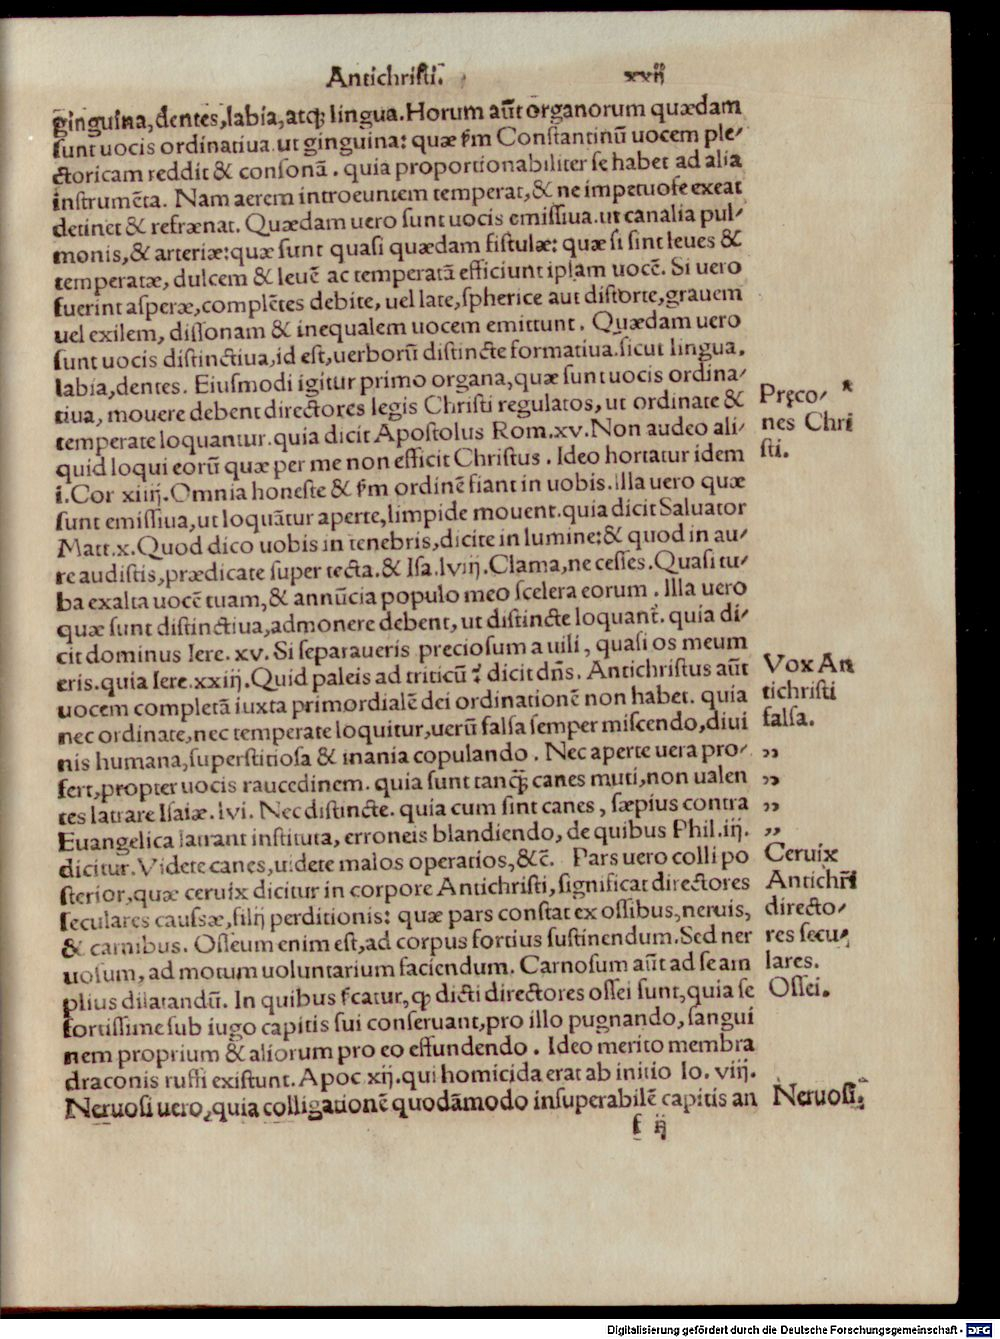 Antichristi. xxij
ginguina, dentes, labia, atq; lingua. Horum aūt organorum quædam
sunt uocis ordinatiua. ut ginguina: quæ s̄m Constantinū uocem ple-
ctoricam reddit & consonā. quia proportionabiliter se habet ad alia
instrumēta. Nam aerem introeuntem temperat, & ne impetuose exeat
detinet & refrænat. Quædam uero sunt uocis emissiua. ut canalia pul-
monis, & arteriæ: quæ sunt quasi quædam fistulæ: quæ si sint leues &
temperatæ, dulcem & leuē ac temperatā efficiunt ipsam uocē. Si uero
fuerint asperæ, complētes debite, uel late, spherice aut distorte, grauem
uel exilem, dissonam & inequalem uocem emittunt. Quædam uero
sunt uocis distinctiua, id est, uerborū distincte formatiua. sicut lingua,
labia, dentes. Eiusmodi igitur primo organa, quæ sunt uocis ordina-
tiua, mouere debent directores legis Christi regulatos, ut ordinate &
temperate loquantur. quia dicit Apostolus Rom. xv. Non audeo ali-
quid loqui eorū quæ per me non efficit Christus. Ideo hortatur idem
i. Cor xiiij. Omnia honeste & s̄m ordinē fiant in uobis. Illa uero quæ
sunt emissiua, ut loquātur aperte, limpide mouent. quia dicit Saluator
Matt. x. Quod dico uobis in tenebris, dicite in lumine: & quod in au-
re audistis, prædicate super tecta. & Isa. lviij. Clama, ne cesses. Quasi tu-
ba exalta uocē tuam, & annūcia populo meo scelera eorum. Illa uero
quæ sunt distinctiua, admonere debent, ut distincte loquant̃. quia di-
cit dominus Iere. xv. Si separaueris preciosum a uili, quasi os meum
eris. quia Iere. xxiij. Quid paleis ad triticū? dicit dñs. Antichristus aūt
uocem completā iuxta primordialē dei ordinationē non habet. quia
nec ordinate, nec temperate loquitur, uerū falsa semper miscendo, diui
nis humana, superstitiosa & inania copulando. Nec aperte uera pro-
fert, propter uocis raucedinem. quia sunt tanq̄; canes muti, non ualen
tes latrare Isaiæ. lvi. Nec distincte. quia cum sint canes, sæpius contra
Euangelica latrant instituta, erroneis blandiendo, de quibus Phil. iij.
dicitur. Videte canes, uidete malos operatios, &c̄. Pars uero colli po
sterior, quæ ceruix dicitur in corpore Antichristi, significat directores
seculares caussæ, filij perditionis: quæ pars constat ex ossibus, neruis,
& carnibus. Osseum enim est, ad corpus fortius sustinendum. Sed ner
uosum, ad motum uoluntarium faciendum. Carnosum aūt ad se am
plius dilatandū. In quibus s̄catur, q̄ dicti directores ossei sunt, quia se
fortissime sub iugo capitis sui conseruant, pro illo pugnando, sangui
nem proprium & aliorum pro eo effundendo. Ideo merito membra
draconis ruffi existunt. Apoc xij. qui homicida erat ab initio Io. viij.
Neruosi uero, quia colligationē quodāmodo insuperabilē capitis an
f ij
Pręco-
nes Chri
sti.
Vox An
tichristi
falsa.
„
„
„
„
Ceruix
Antichr̄i
directo-
res secu-
lares.
Ossei.
Neruosi.
Digitalisierung gefördert durch die Deutsche Forschungsgemeinschaft - DFG